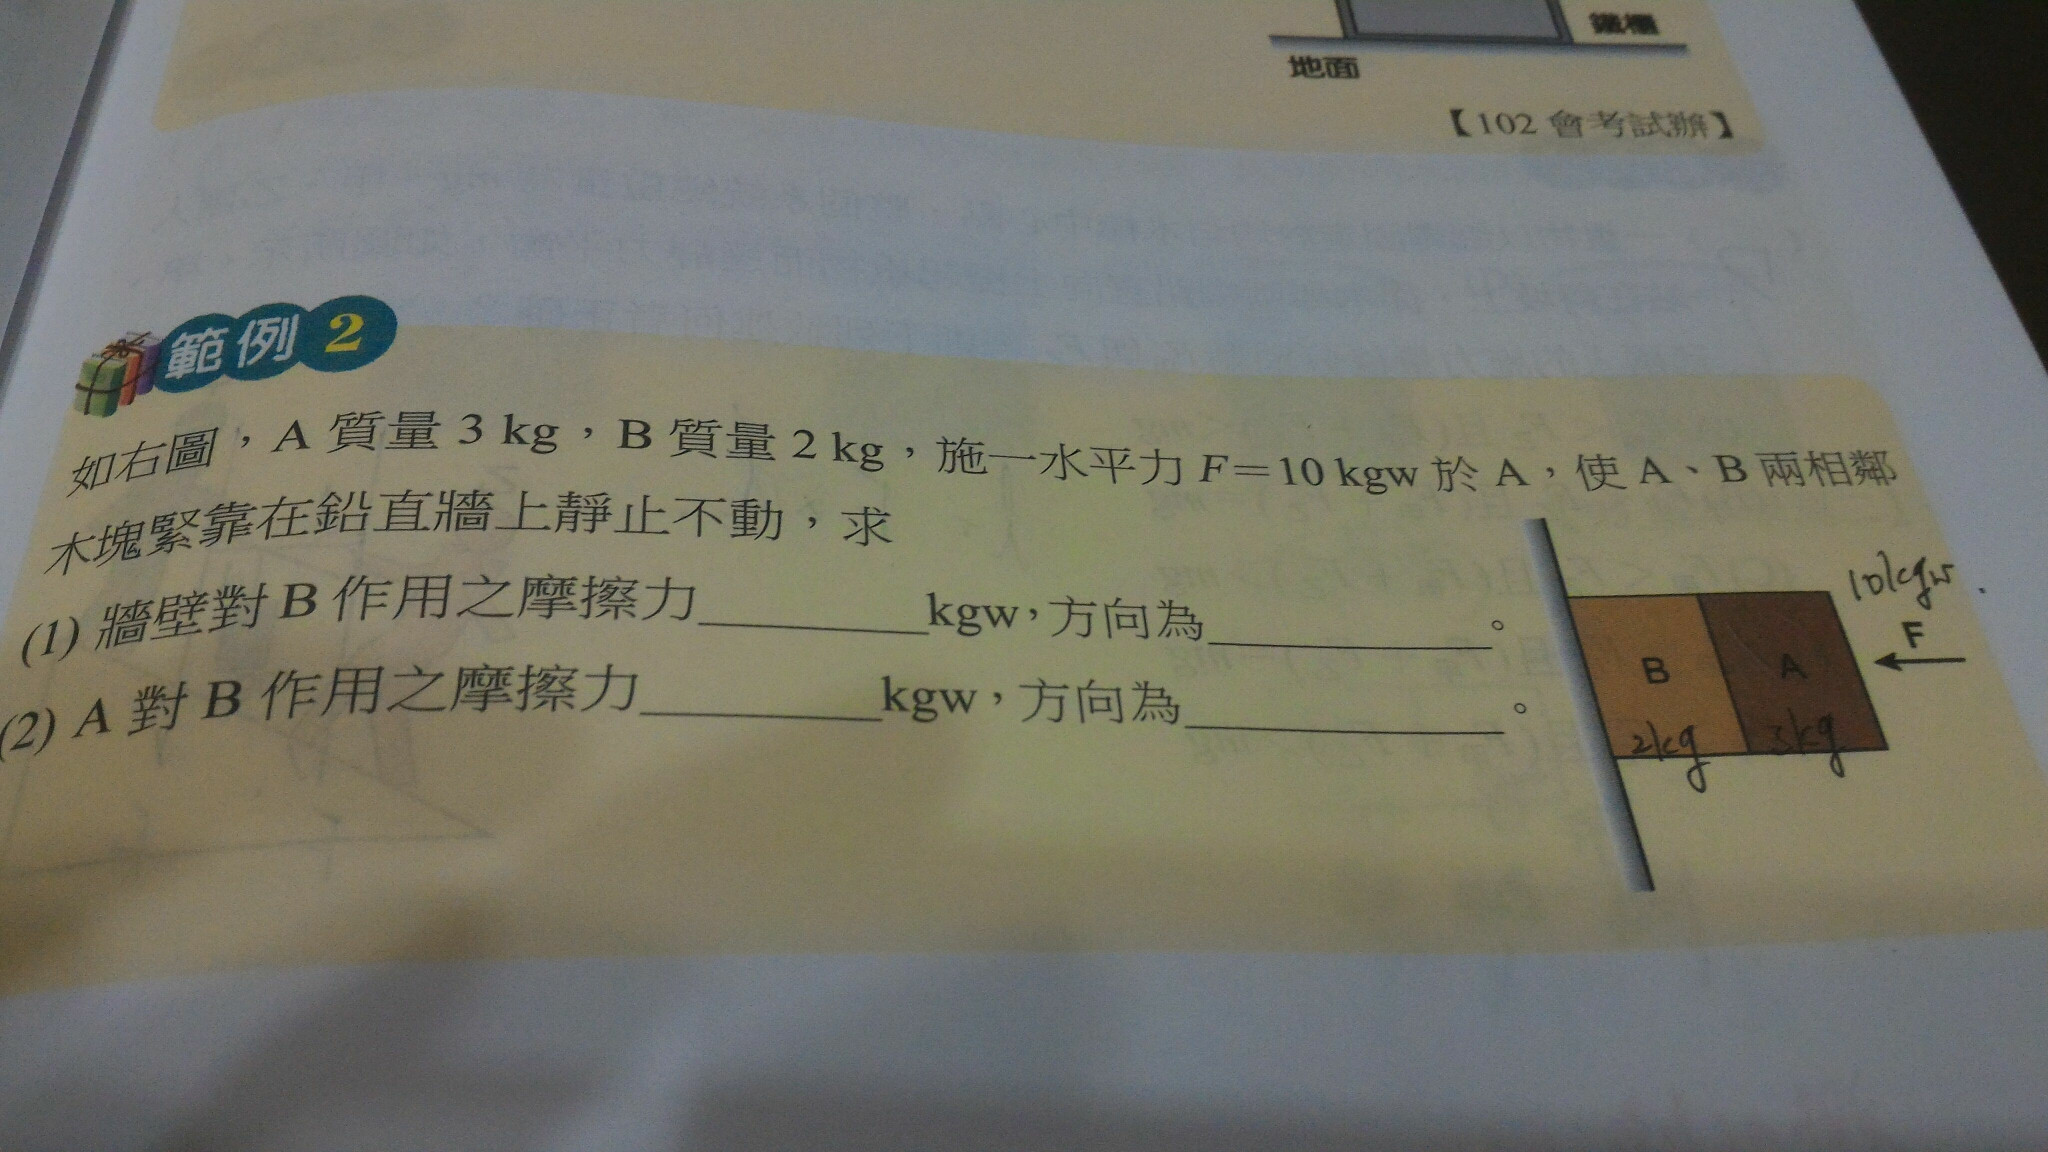 鐵櫃
地面
【102 會考試辦】
範例 2
如右圖，A 質量 3 kg，B 質量 2 kg，施一水平力 F＝10 kgw 於 A，使 A、B 兩相鄰
木塊緊靠在鉛直牆上靜止不動，求
(1) 牆壁對 B 作用之摩擦力________kgw，方向為__________。
(2) A 對 B 作用之摩擦力________kgw，方向為__________。
10kgw
F
B A
2kg 3kg